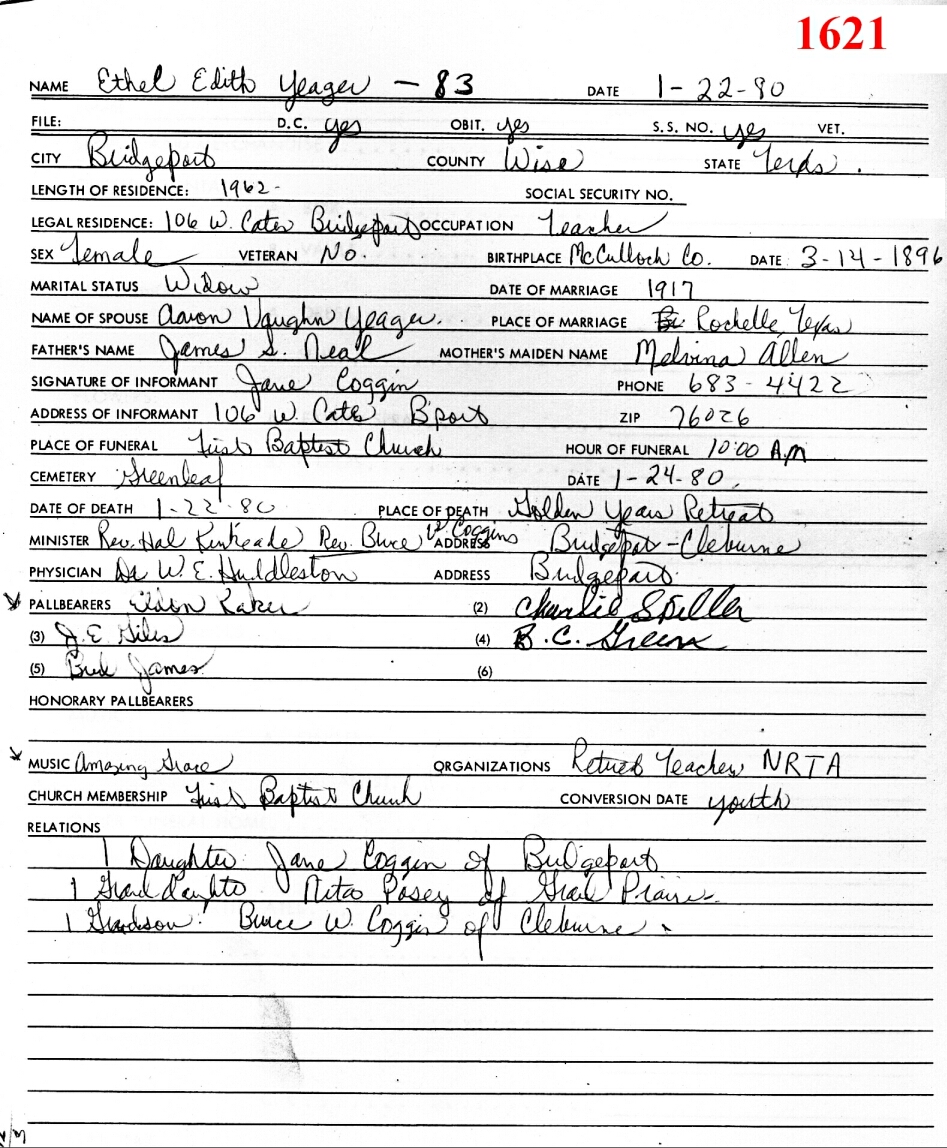 1621
NAME Ethel Edith Yeager - 83 DATE 1-22-80
FILE: D.C. yes OBIT. yes S.S. NO. yes VET.
CITY Bridgeport COUNTY Wise STATE Texas.
LENGTH OF RESIDENCE: 1962- SOCIAL SECURITY NO.
LEGAL RESIDENCE: 106 W. Cates Bridgeport OCCUPATION Teacher
SEX Female VETERAN No. BIRTHPLACE McCulloch Co. DATE: 3-14-1896
MARITAL STATUS Widow DATE OF MARRIAGE 1917
NAME OF SPOUSE Aaron Vaughn Yeager. PLACE OF MARRIAGE Rochelle, Texas
FATHER'S NAME James S. Neal MOTHER'S MAIDEN NAME Melvina Allen
SIGNATURE OF INFORMANT Jane Coggin PHONE 683-4422
ADDRESS OF INFORMANT 106 W. Cates B'port ZIP 76026
PLACE OF FUNERAL First Baptist Church HOUR OF FUNERAL 10:00 A.M
CEMETERY Greenleaf DATE 1-24-80.
DATE OF DEATH 1-22-80 PLACE OF DEATH Golden Years Retreat
MINISTER Rev. Hal Kinkeade Rev. Bruce W Coggins ADDRESS Bridgeport - Cleburne
PHYSICIAN Dr W. E. Huddleston ADDRESS Bridgeport.
PALLBEARERS Eldon Raker (2) Charlie Spiller
(3) J. E. Giles (4) B. C. Green
(5) Bud James (6)
HONORARY PALLBEARERS
MUSIC Amazing Grace ORGANIZATIONS Retired Teacher NRTA
CHURCH MEMBERSHIP First Baptist Church CONVERSION DATE youth
RELATIONS
1 Daughter Jane Coggin of Bridgeport
1 Granddaughter Nita Posey of Grand Prairie.
1 Grandson: Bruce W. Coggin of Cleburne.